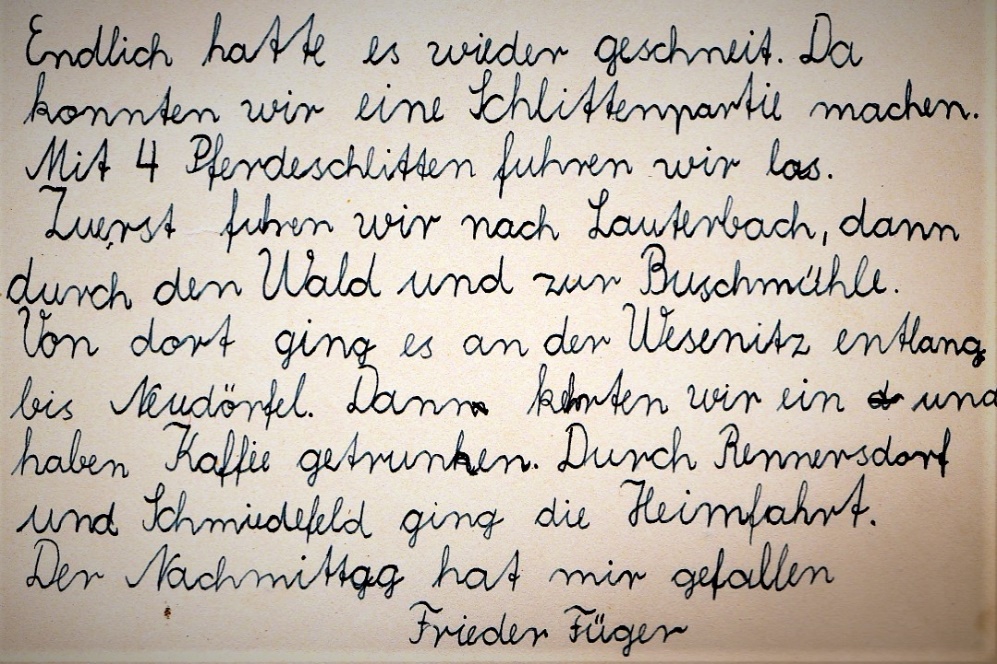 Endlich hatte es wieder geschneit. Da
konnten wir eine Schlittenpartie machen.
Mit 4 Pferdeschlitten fuhren wir los.
Zuerst fuhren wir nach Lauterbach, dann
durch den Wald und zur Buschmühle.
Von dort ging es an der Wesenitz entlang
bis Neudörfel. Dann kehrten wir ein und
haben Kaffee getrunken. Durch Rennersdorf
und Schmiedefeld ging die Heimfahrt.
Der Nachmittag hat mir gefallen
Frieder Füger